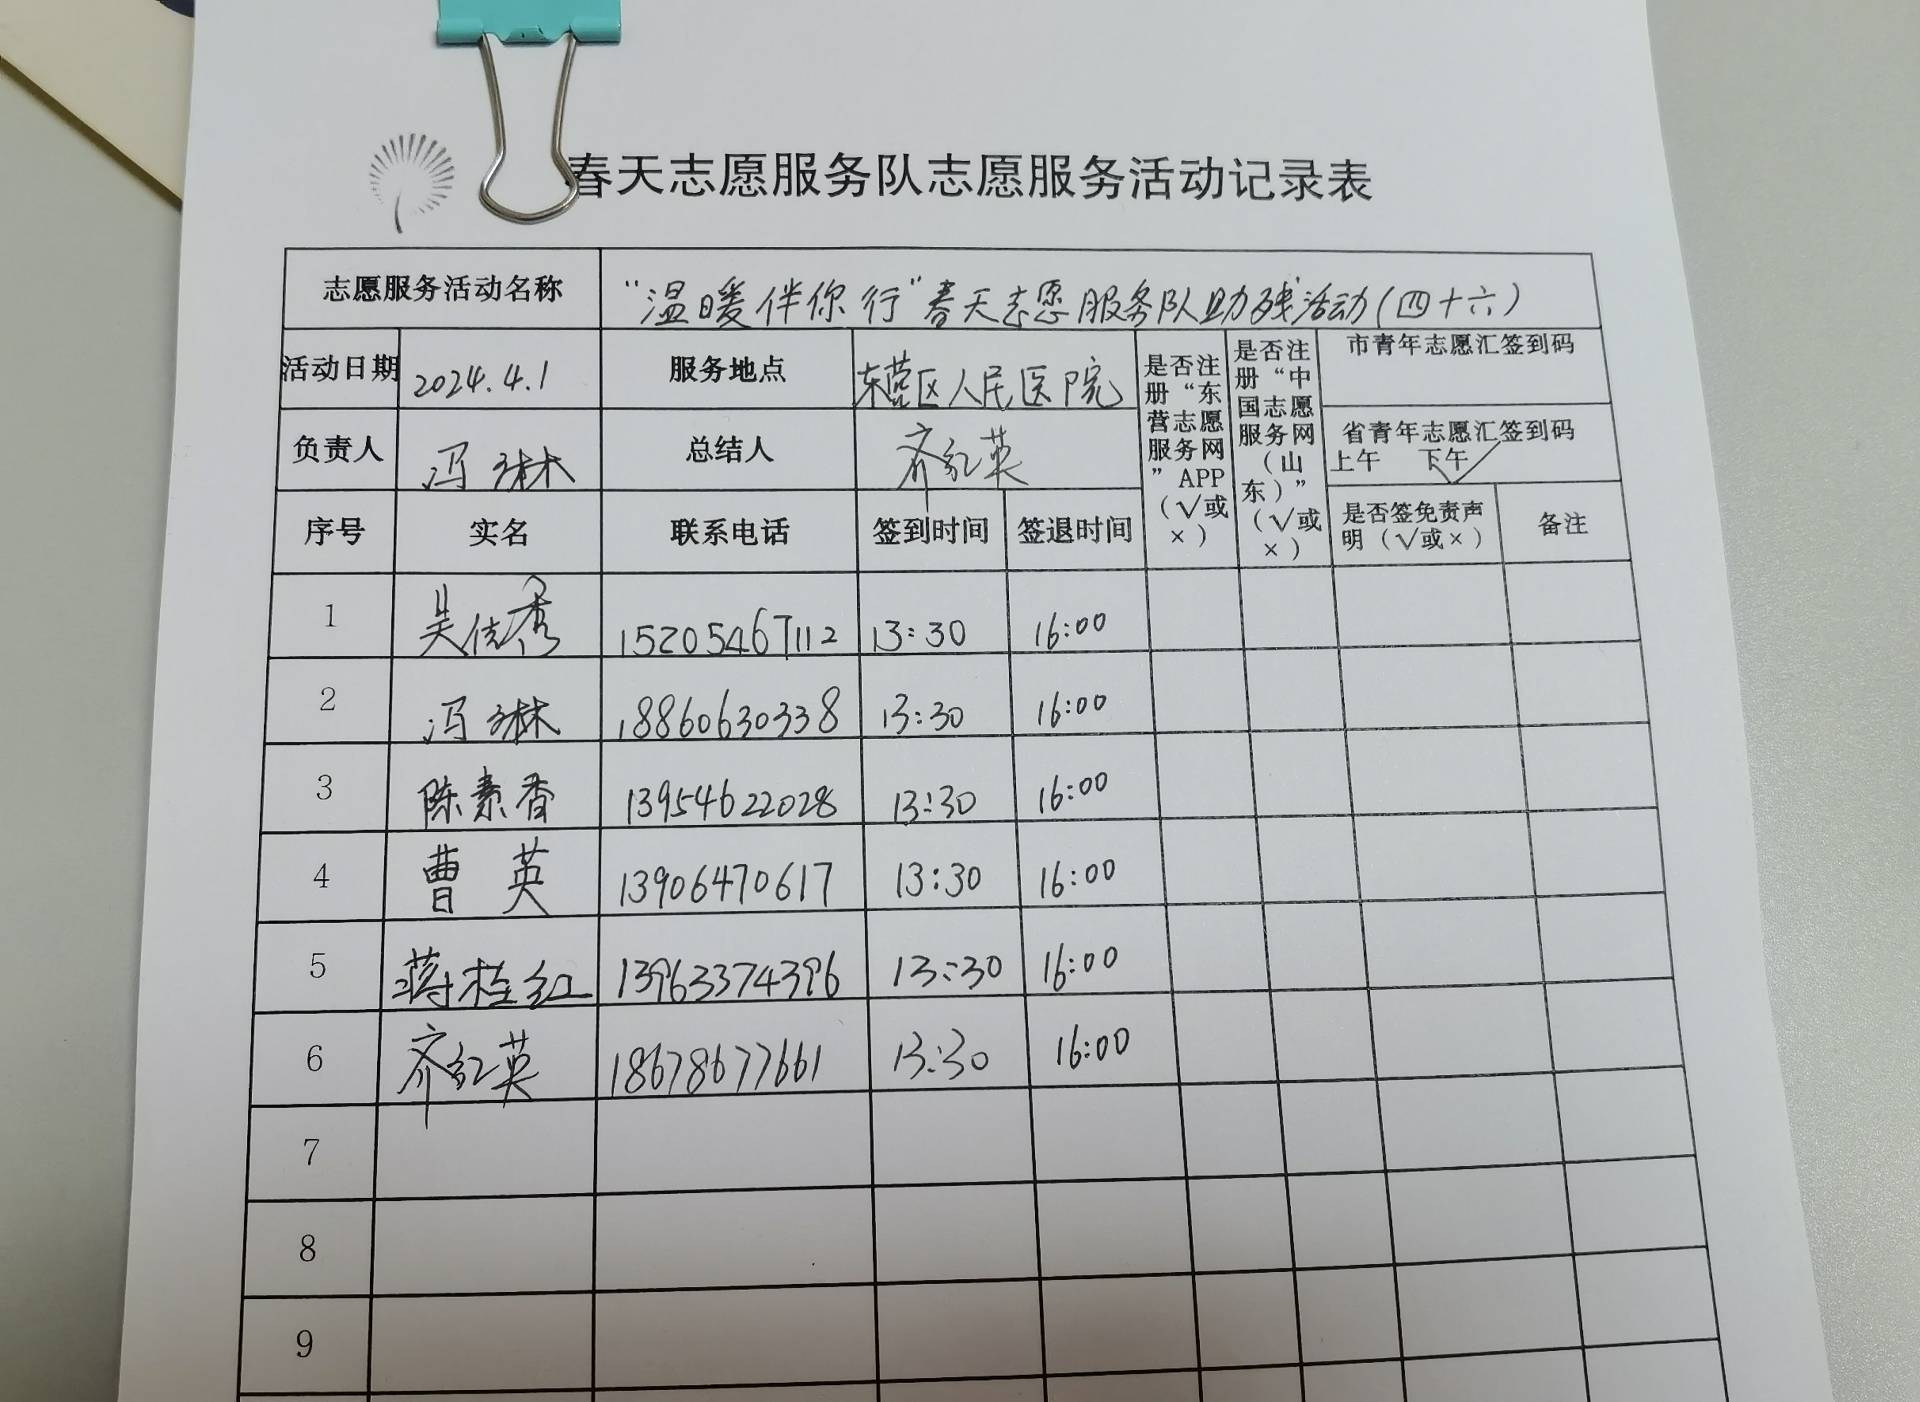 春天志愿服务队志愿服务活动记录表
志愿服务活动名称 “温暖伴你行”春天志愿服务队助残活动(四十六)
活动日期 2024.4.1 服务地点 东营区人民医院
是否注册“东营志愿服务网”APP（√或×）
是否注册“中国志愿服务网（山东）”（√或×）
市青年志愿汇签到码
负责人 冯琳 总结人 齐红英
省青年志愿汇签到码
上午 下午√
序号 实名 联系电话 签到时间 签退时间 是否签免责声明（√或×） 备注
1 吴佳秀 15205467112 13:30 16:00
2 冯琳 18860630338 13:30 16:00
3 陈素香 13954622028 13:30 16:00
4 曹英 13906470617 13:30 16:00
5 蒋桂红 13963374396 13:30 16:00
6 齐红英 18678677661 13:30 16:00
7
8
9